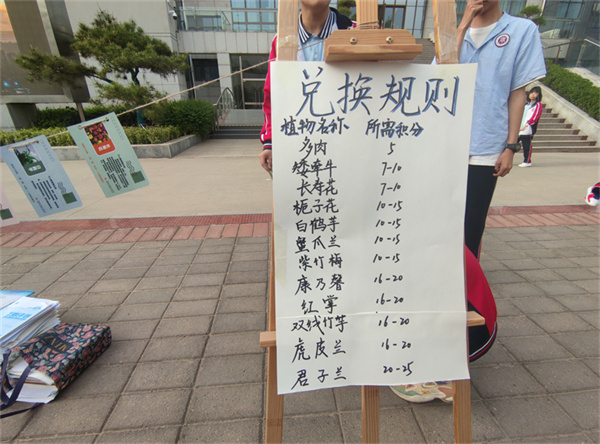 兑换规则
植物名称 所需积分
多肉 5
矮牵牛 7-10
长寿花 7-10
栀子花 10-15
白鹤芋 10-15
蟹爪兰 10-15
紫竹梅 10-15
康乃馨 16-20
红掌 16-20
双线竹芋 16-20
虎皮兰 16-20
君子兰 20-25